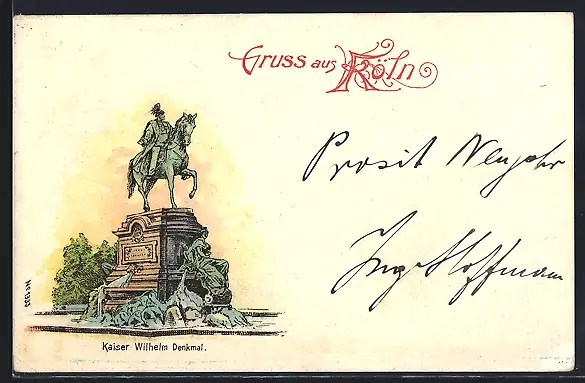 Gruss aus Köln
Prosit Neujahr
Ing. Hoffmann
Kaiser Wilhelm Denkmal.